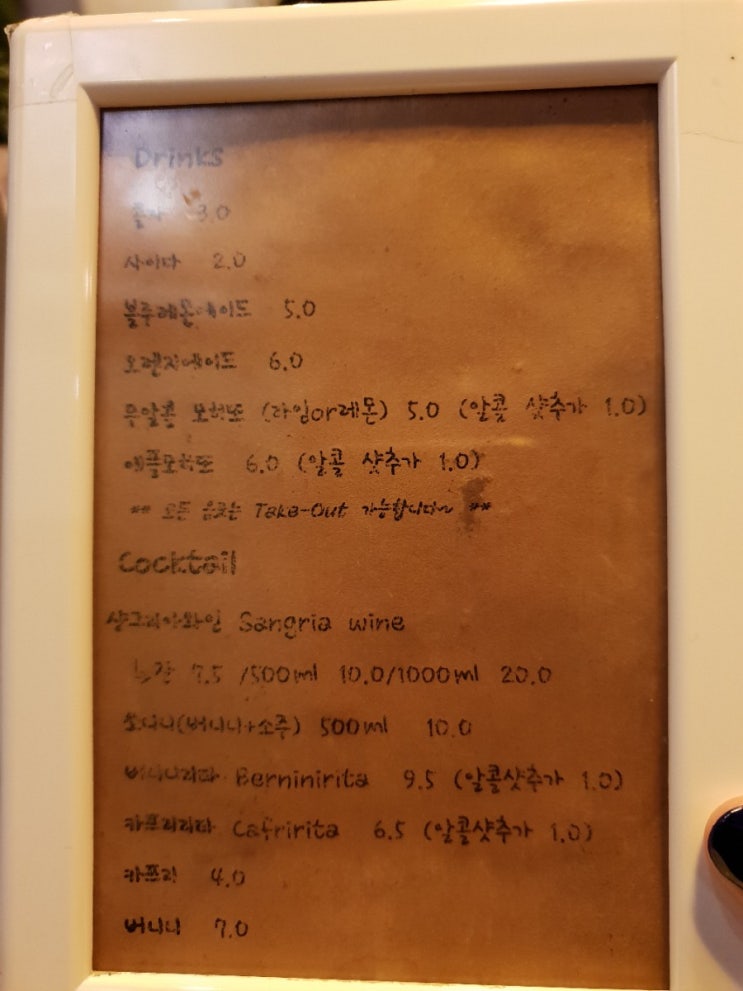 Drinks
콜라 3.0
사이다 2.0
블루레몬에이드 5.0
오렌지에이드 6.0
무알콜 모히또 (라임or레몬) 5.0 (알콜 샷추가 1.0)
애플모히또 6.0 (알콜 샷추가 1.0)
** 모든 음료는 Take-Out 가능합니다~ **
Cocktail
샹그리아와인 Sangria wine
7.5 /500ml 10.0/1000ml 20.0
쏘니니(버니니+소주) 500ml 10.0
버니니리따 Berninirita 9.5 (알콜샷추가 1.0)
카프리리따 Cafririta 6.5 (알콜샷추가 1.0)
카프리 4.0
버니니 7.0